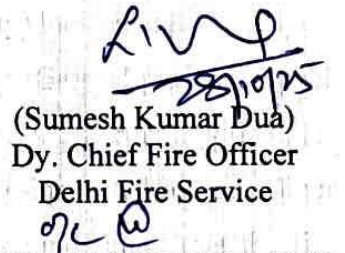 28/10/25
(Sumesh Kumar Dua)
Dy. Chief Fire Officer
Delhi Fire Service